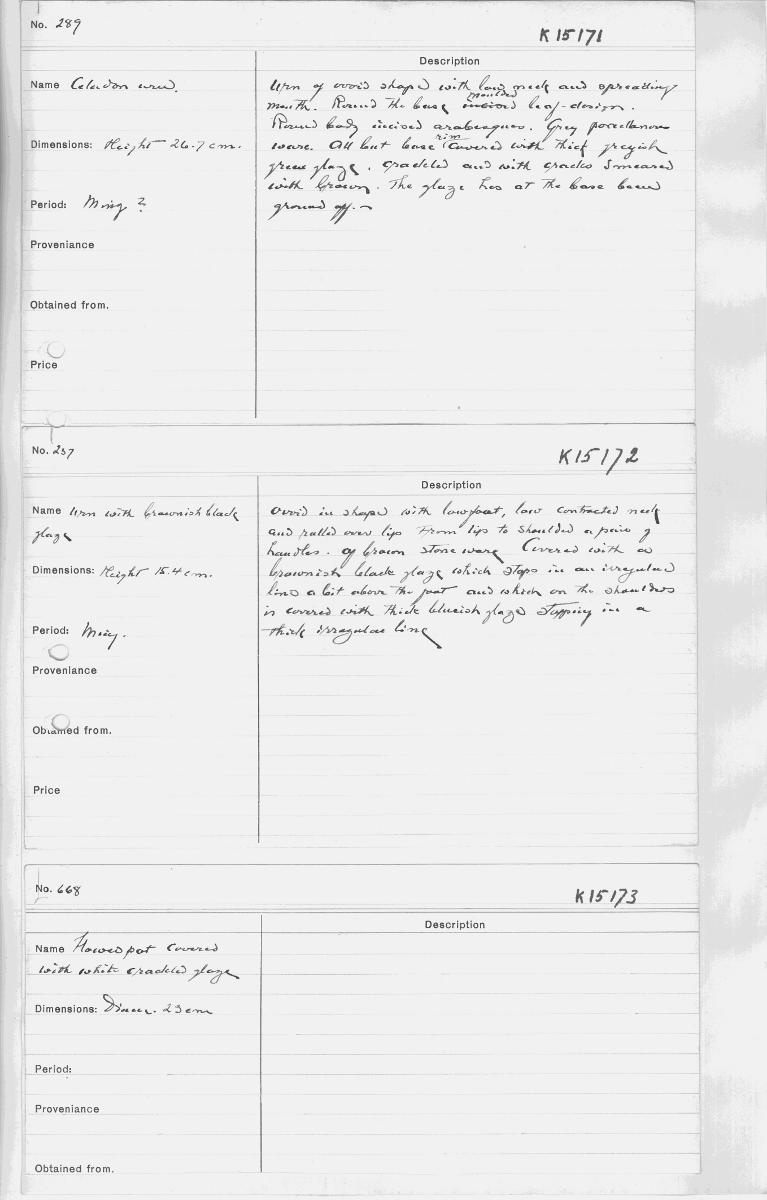 No. 289
K 15171
Description
Name Celadon urn.
Urn of ovoid shape with low neck and spreading
moulded
mouth. Round the base incised leaf-design.
Round body incised arabesques. Grey porcellanous
rim
Dimensions: Height 26.7 cm.
ware. All but base covered with thick greyish
green glaze. crackled and with cracks smeared
with brown. The glaze has at the base been
Period: Ming ?
ground off.
Proveniance
Obtained from.
Price
No. 237
K15172
Description
Name Urn with brownish black
glaze
Ovoid in shape with low foot, low contracted neck
and rolled over lip. From lip to shoulder a pair of
handles. Of brown stone ware. Covered with a
Dimensions: Height 15.4 cm.
brownish black glaze which stops in an irregular
line a bit above the foot and which on the shoulders
is covered with thick blueish glaze stopping in a
Period: Ming.
thick irregular line
Proveniance
Obtained from.
Price
No. 668
K15173
Description
Name Flowerpot covered
with white crackled glaze
Dimensions: Diam. 23 cm
Period:
Proveniance
Obtained from.